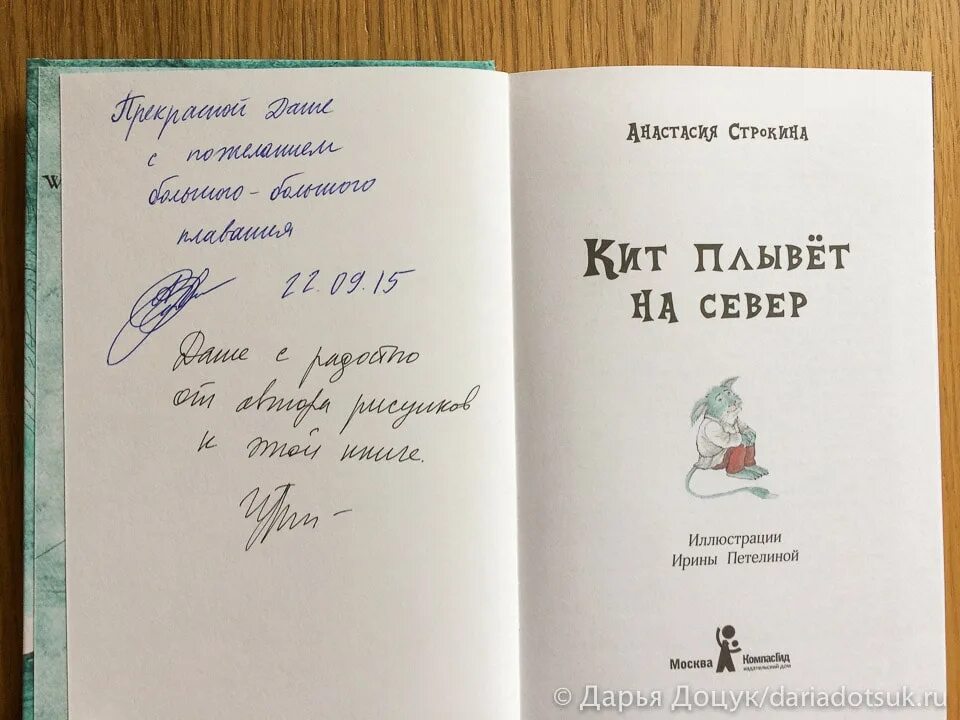 Прекрасной Даше
с пожеланием
большого-большого
плавания
22.09.15
Даше с радостью
от автора рисунков
к этой книге.
Анастасия Строкина
Кит плывёт
на север
Иллюстрации
Ирины Петелиной
Москва
КомпасГид
издательский дом
© Дарья Доцук/dariadotsuk.ru